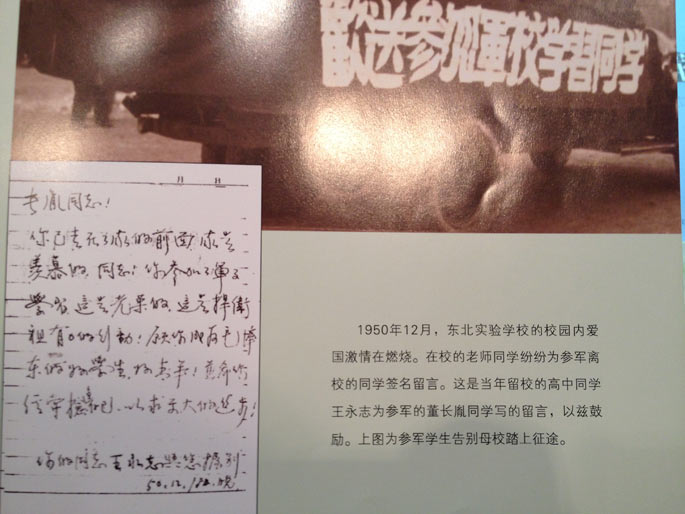 歡送参加軍校学習同学
月 日
長胤同志!
你已走在了我的前面,我是
羡慕的,同志!你参加了軍校
學習,这是光栄的,这是捍衛
祖國的行動!願你成为毛澤
东的好學生,
以求更大的進步!
你的同志王永志
50.12.
1950年12月，东北实验学校的校园内爱
国激情在燃烧。在校的老师同学纷纷为参军离
校的同学签名留言。这是当年留校的高中同学
王永志为参军的董长胤同学写的留言，以兹鼓
励。上图为参军学生告别母校踏上征途。